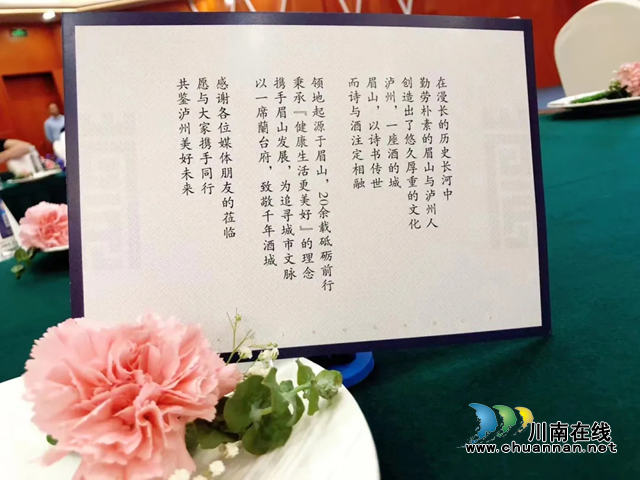 在漫长的历史长河中
勤劳朴素的眉山与泸州人
创造出了悠久厚重的文化
泸州，一座酒的城
眉山，以诗书传世
而诗与酒注定相融
领地起源于眉山，20余载砥砺前行
秉承『健康生活更美好』的理念
携手眉山发展，为追寻城市文脉
以一席蘭台府，致敬千年酒城
感谢各位媒体朋友的莅临
愿与大家携手同行
共鉴泸州美好未来
川南在线
www.chuannan.net